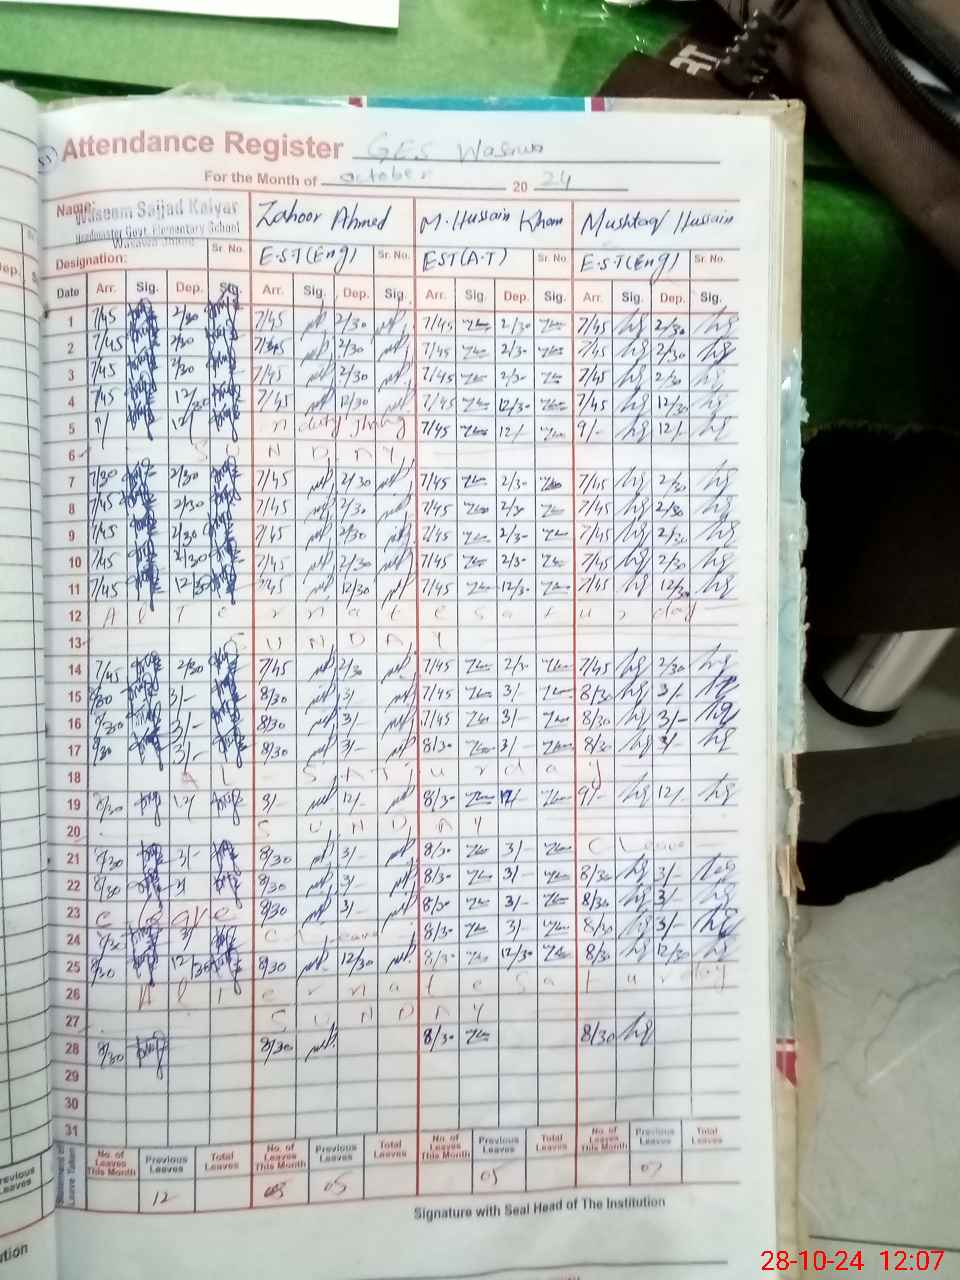 51 Attendance Register GES Wasawa
For the Month of October 20 24
Name: Waseem Sajjad Kalyar Zahoor Ahmed M. Hussain Khan Mushtaq Hussain
Headmaster Govt. Elementary School
Designation: Sr. No. E.S.T(Eng) Sr. No. EST(A.T) Sr. No. E.S.T(Eng) Sr. No.
Date Arr. Sig. Dep. Sig. Arr. Sig. Dep. Sig. Arr. Sig. Dep. Sig. Arr. Sig. Dep. Sig.
1 7/45 2/30 7/45 2/30 7/45 2/30 7/45 2/30
2 7/45 2/30 7/45 2/30 7/45 2/30 7/45 2/30
3 7/45 2/30 7/45 2/30 7/45 2/30 7/45 2/30
4 7/45 12/30 7/45 12/30 7/45 12/30 7/45 12/30
5 9/ 12/ on duty jhang 7/45 12/- 9/- 12/-
6 SUNDAY
7 7/30 2/30 7/45 2/30 7/45 2/30 7/45 2/30
8 7/45 2/30 7/45 2/30 7/45 2/30 7/45 2/30
9 7/45 2/30 7/45 2/30 7/45 2/30 7/45 2/30
10 7/45 2/30 7/45 2/30 7/45 2/30 7/45 2/30
11 7/45 12/30 7/45 12/30 7/45 12/30 7/45 12/30
12 Alternate saturday
13 SUNDAY
14 7/45 2/30 7/45 2/30 7/45 2/30 7/45 2/30
15 8/30 3/- 8/30 3/- 7/45 3/- 8/30 3/-
16 8/30 3/- 8/30 3/- 7/45 3/- 8/30 3/-
17 8/30 3/- 8/30 3/- 8/30 3/- 8/30 3/-
18
19 8/30 12/ 9/- 12/- 8/30 12/- 9/- 12/-
20 SUNDAY
21 8/30 3/- 8/30 3/- 8/30 3/- C Leave
22 8/30 3/ 8/30 3/- 8/30 3/- 8/30 3/-
23 C-leave 8/30 3/- 8/30 3/- 8/30 3/-
24 8/30 3/ C-Leave 8/30 3/- 8/30 3/-
25 8/30 12/30 8/30 12/30 8/30 12/30 8/30 12/30
26 Alternate Saturday
27 SUNDAY
28 8/30 8/30 8/30 8/30
29
30
31
Statement of Leave Taken No. of Leaves This Month Previous Leaves Total Leaves No. of Leaves This Month Previous Leaves Total Leaves No. of Leaves This Month Previous Leaves Total Leaves No. of Leaves This Month Previous Leaves Total Leaves
12 03 05 05 07
Signature with Seal Head of The Institution
28-10-24 12:07